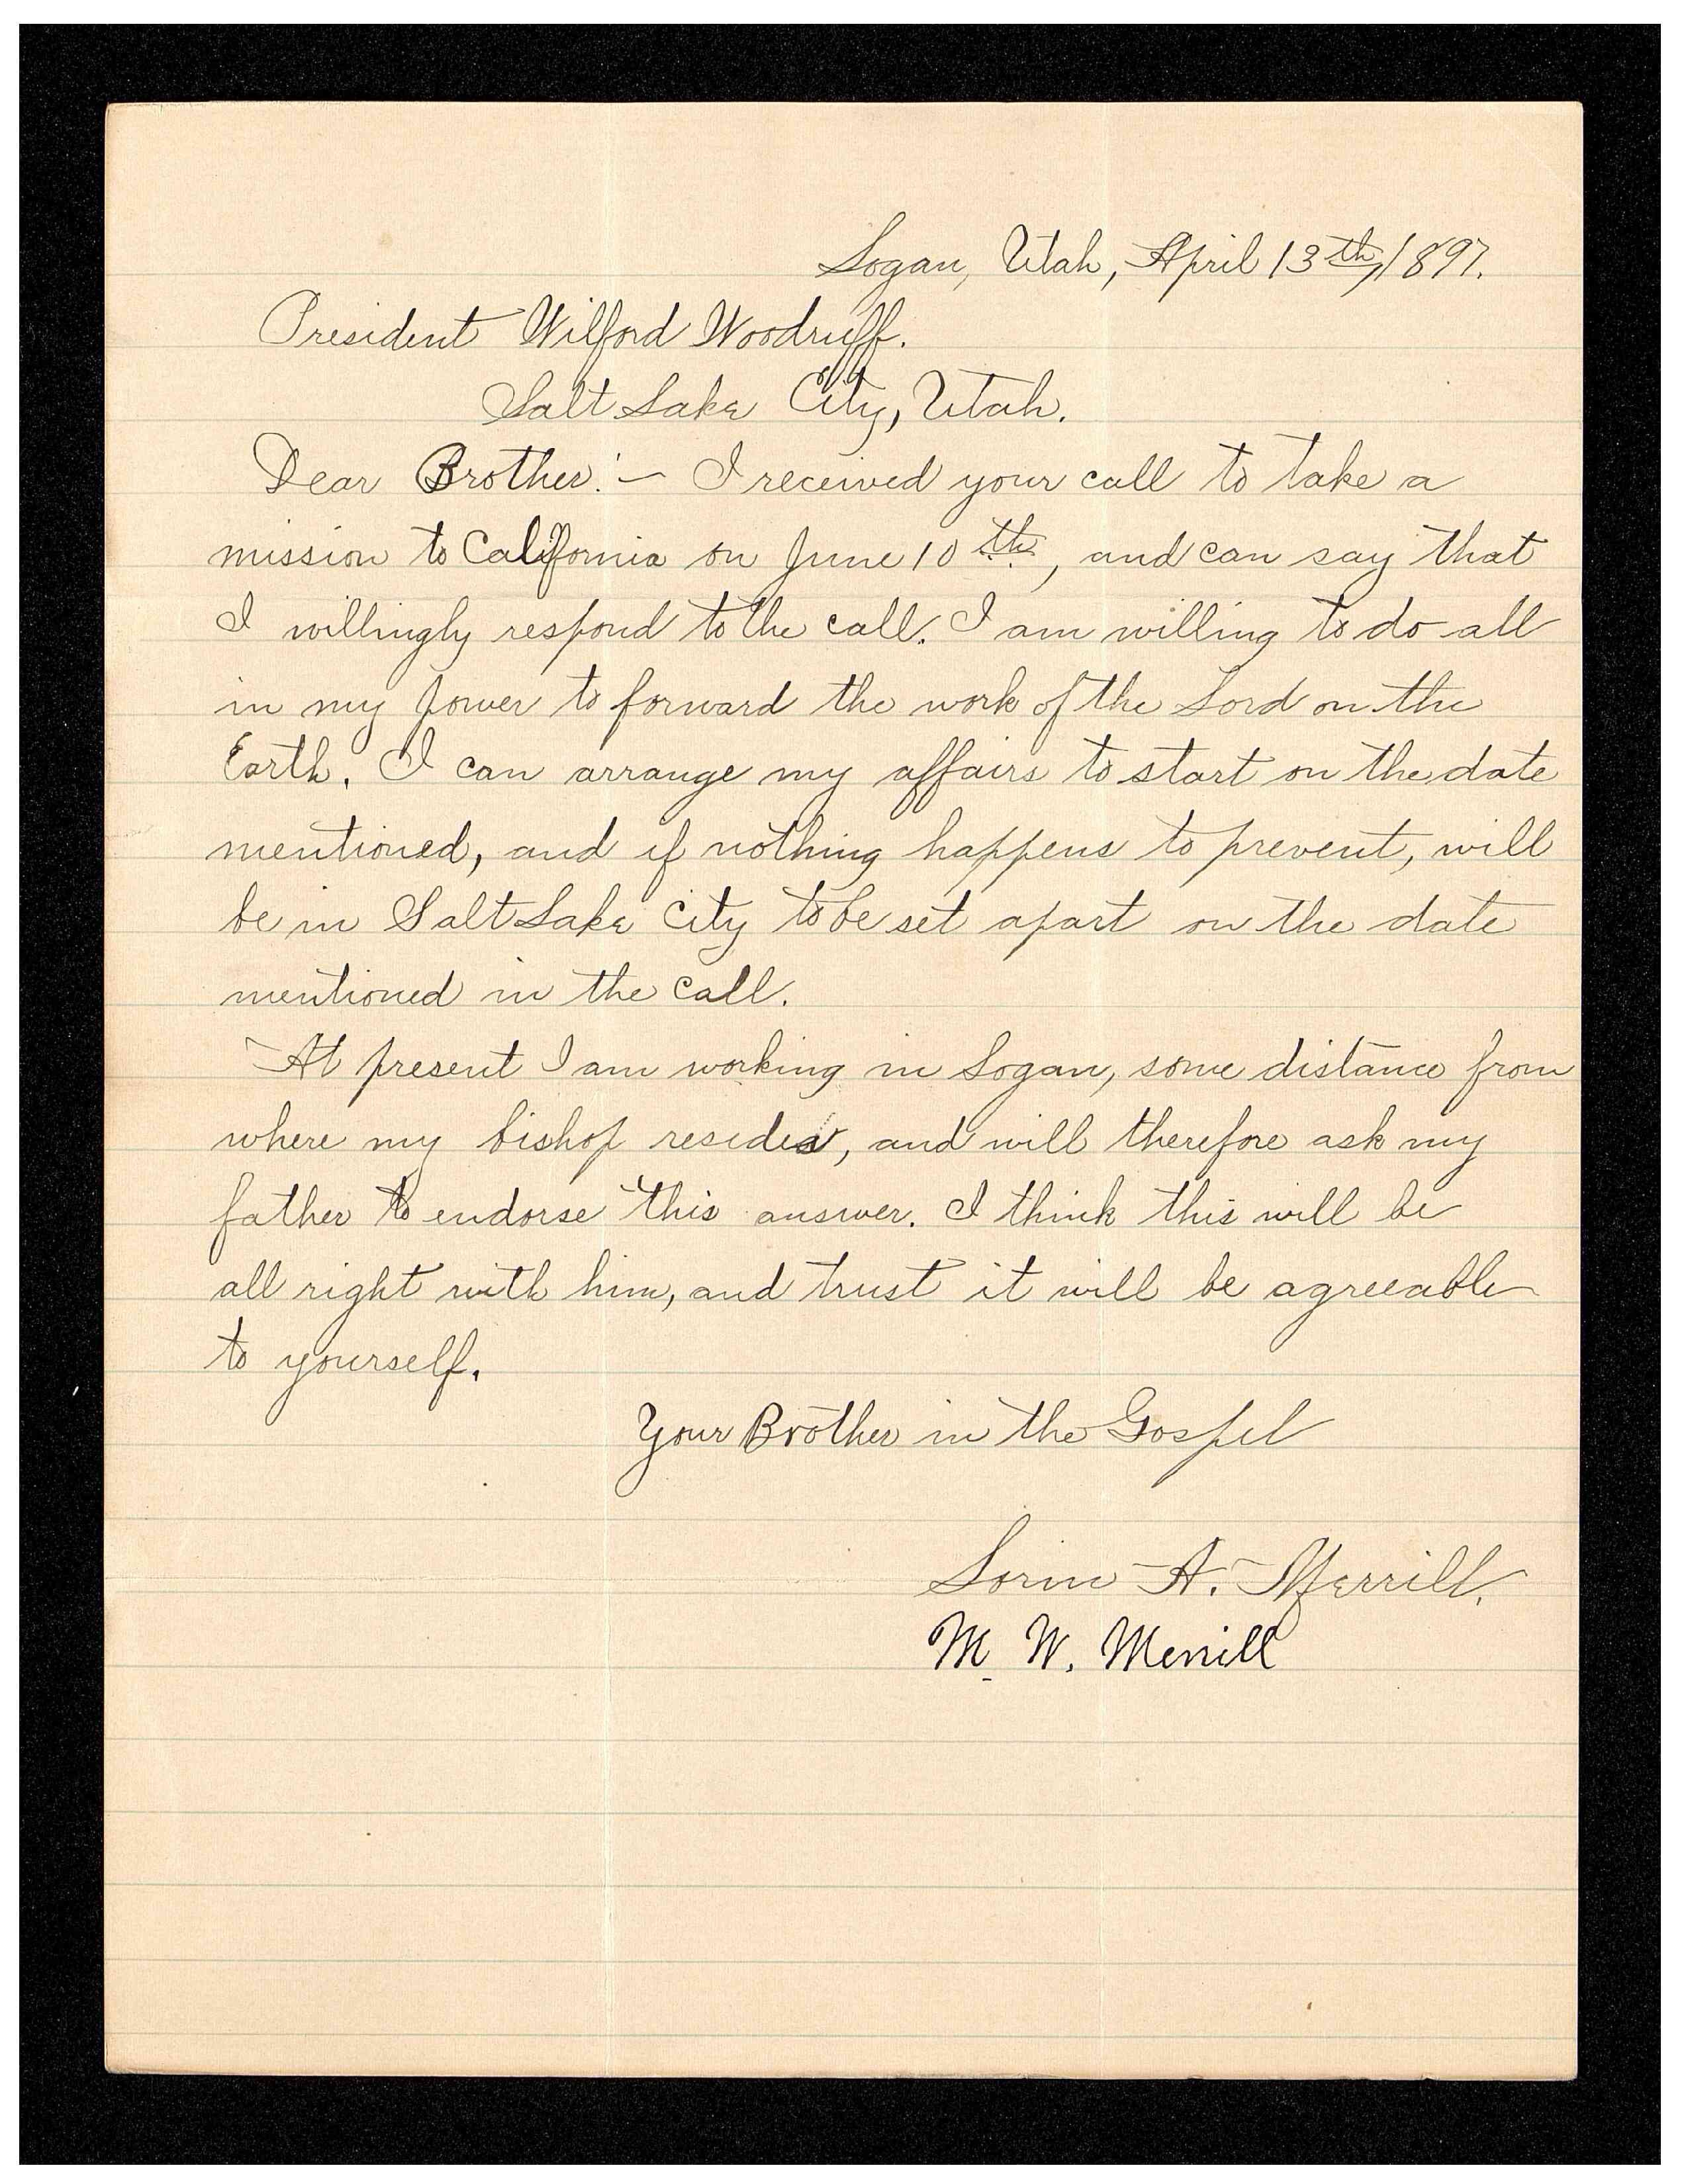 Logan, Utah, April 13th, 1897.
President Wilford Woodruff.
Salt Lake City, Utah.
Dear Brother:— I received your call to take a
mission to California on June 10th, and can say that
I willingly respond to the call. I am willing to do all
in my power to forward the work of the Lord on the
Earth. I can arrange my affairs to start on the date
mentioned, and if nothing happens to prevent, will
be in Salt Lake City to be set apart on the date
mentioned in the call.
At present I am working in Logan, some distance from
where my bishop resides, and will therefore ask my
father to endorse this answer. I think this will be
all right with him, and trust it will be agreeable
to yourself.
Your Brother in the Gospel
Lorin A. Merrill.
M. W. Merrill